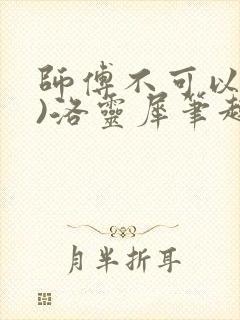 師傅不可以
)洛靈犀筆趣
月半折耳